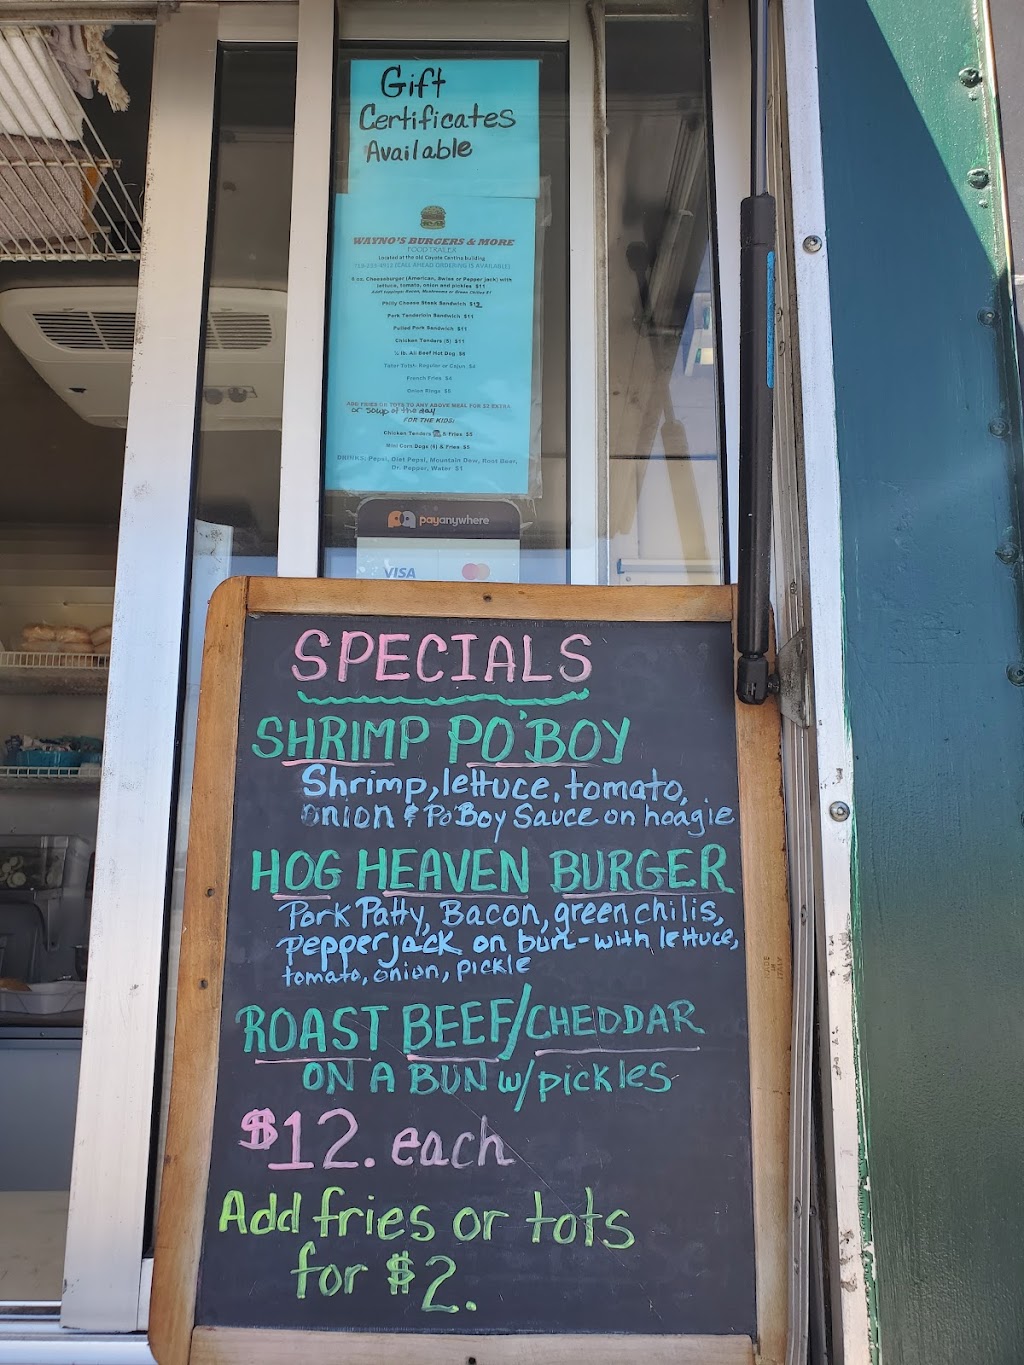 Gift
Certificates
Available
WAYNO'S BURGERS & MORE
FOOD TRAILER
Located at the old Coyote Cantina building
(CALL AHEAD ORDERING IS AVAILABLE)
6 oz. Cheeseburger (American, Swiss or Pepper jack) with
lettuce, tomato, onion and pickles $11
Philly Cheese Steak Sandwich $12
Pork Tenderloin Sandwich $11
Pulled Pork Sandwich $11
Chicken Tenders (5) $11
¼ lb. All Beef Hot Dog $6
Tater Tots: Regular or Cajun $4
French Fries $4
Onion Rings $5
ADD FRIES OR TOTS TO ANY ABOVE MEAL FOR $2 EXTRA
or soup of the day
FOR THE KIDS:
Chicken Tenders & Fries $5
Mini Corn Dogs (6) & Fries $5
DRINKS: Pepsi, Diet Pepsi, Mountain Dew, Root Beer,
Dr. Pepper, Water $1
payanywhere
VISA
SPECIALS
SHRIMP PO'BOY
Shrimp, lettuce, tomato,
onion & Po'Boy Sauce on hoagie
HOG HEAVEN BURGER
Pork Patty, Bacon, green chilis,
pepperjack on bun-with lettuce,
tomato, onion, pickle
ROAST BEEF/CHEDDAR
ON A BUN w/pickles
$12. each
Add fries or tots
for $2.
MADE
IN
ITALY